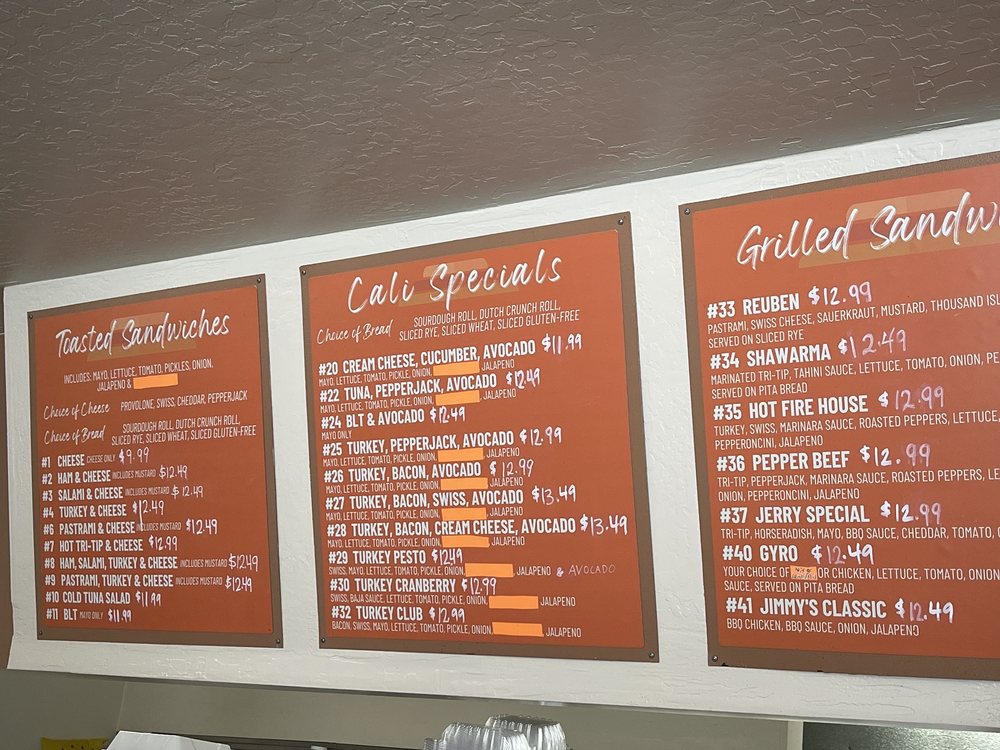 Toasted Sandwiches
INCLUDES: MAYO, LETTUCE, TOMATO, PICKLES, ONION,
JALAPENO &
Choice of Cheese PROVOLONE, SWISS, CHEDDAR, PEPPERJACK
Choice of Bread SOURDOUGH ROLL, DUTCH CRUNCH ROLL,
SLICED RYE, SLICED WHEAT, SLICED GLUTEN-FREE
#1 CHEESE CHEESE ONLY $9.99
#2 HAM & CHEESE INCLUDES MUSTARD $12.49
#3 SALAMI & CHEESE INCLUDES MUSTARD $12.49
#4 TURKEY & CHEESE $12.49
#6 PASTRAMI & CHEESE INCLUDES MUSTARD $12.49
#7 HOT TRI-TIP & CHEESE $12.99
#8 HAM, SALAMI, TURKEY & CHEESE INCLUDES MUSTARD $12.49
#9 PASTRAMI, TURKEY & CHEESE INCLUDES MUSTARD $12.49
#10 COLD TUNA SALAD $11.99
#11 BLT MAYO ONLY $11.99
Cali Specials
Choice of Bread SOURDOUGH ROLL, DUTCH CRUNCH ROLL,
SLICED RYE, SLICED WHEAT, SLICED GLUTEN-FREE
#20 CREAM CHEESE, CUCUMBER, AVOCADO $11.99
MAYO, LETTUCE, TOMATO, PICKLE, ONION, JALAPENO
#22 TUNA, PEPPERJACK, AVOCADO $12.49
MAYO, LETTUCE, TOMATO, PICKLE, ONION, JALAPENO
#24 BLT & AVOCADO $12.49
MAYO ONLY
#25 TURKEY, PEPPERJACK, AVOCADO $12.99
MAYO, LETTUCE, TOMATO, PICKLE, ONION, JALAPENO
#26 TURKEY, BACON, AVOCADO $12.99
MAYO, LETTUCE, TOMATO, PICKLE, ONION, JALAPENO
#27 TURKEY, BACON, SWISS, AVOCADO $13.49
MAYO, LETTUCE, TOMATO, PICKLE, ONION, JALAPENO
#28 TURKEY, BACON, CREAM CHEESE, AVOCADO $13.49
MAYO, LETTUCE, TOMATO, PICKLE, ONION, JALAPENO
#29 TURKEY PESTO $12.49
SWISS, MAYO, LETTUCE, TOMATO, PICKLE, ONION, JALAPENO & AVOCADO
#30 TURKEY CRANBERRY $12.99
SWISS, BAJA SAUCE, LETTUCE, TOMATO, PICKLE, ONION, JALAPENO
#32 TURKEY CLUB $12.99
BACON, SWISS, MAYO, LETTUCE, TOMATO, PICKLE, ONION, JALAPENO
Grilled Sandw
#33 REUBEN $12.99
PASTRAMI, SWISS CHEESE, SAUERKRAUT, MUSTARD, THOUSAND ISL
SERVED ON SLICED RYE
#34 SHAWARMA $12.49
MARINATED TRI-TIP, TAHINI SAUCE, LETTUCE, TOMATO, ONION, PE
SERVED ON PITA BREAD
#35 HOT FIRE HOUSE $12.99
TURKEY, SWISS, MARINARA SAUCE, ROASTED PEPPERS, LETTUCE,
PEPPERONCINI, JALAPENO
#36 PEPPER BEEF $12.99
TRI-TIP, PEPPERJACK, MARINARA SAUCE, ROASTED PEPPERS, LE
ONION, PEPPERONCINI, JALAPENO
#37 JERRY SPECIAL $12.99
TRI-TIP, HORSERADISH, MAYO, BBQ SAUCE, CHEDDAR, TOMATO,
#40 GYRO $12.49
YOUR CHOICE OF OR CHICKEN, LETTUCE, TOMATO, ONION
SAUCE, SERVED ON PITA BREAD
#41 JIMMY'S CLASSIC $12.49
BBQ CHICKEN, BBQ SAUCE, ONION, JALAPENO